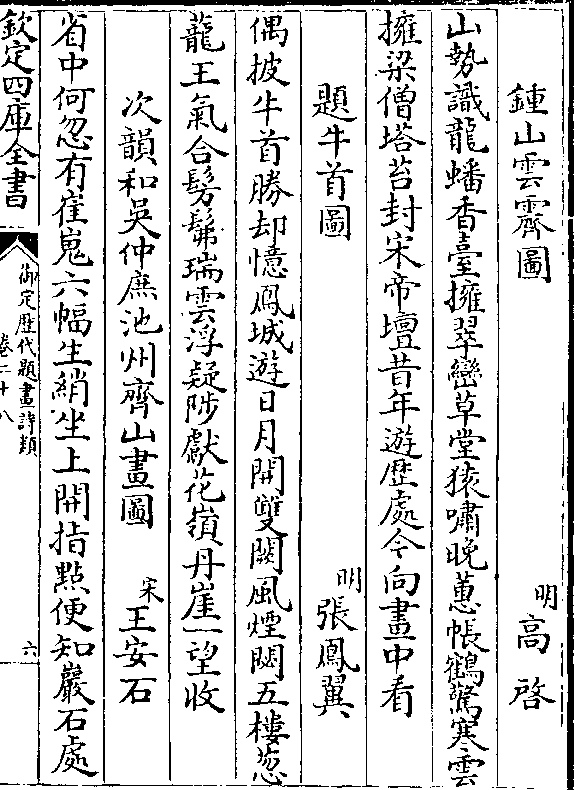 鍾山雲霽圖　明高啓
山勢識龍蟠香臺擁翠巒草堂猿嘯晚蕙帳鶴驚寒雲
擁梁僧塔苔封宋帝壇昔年遊歴處今向畫中看
題牛首圖　明張鳳翼
偶披牛首勝却憶鳳城遊日月開雙闕風煙閟五樓葱
龍王氣合髣髴瑞雲浮疑陟獻花嶺丹崖一望收
次韻和吳仲庶池州齊山畫圖　宋王安石
省中何忽有崔嵬六幅生綃坐上開指點便知巖石處
欽定四庫全書　御定歴代題畫詩類　卷二十八　六